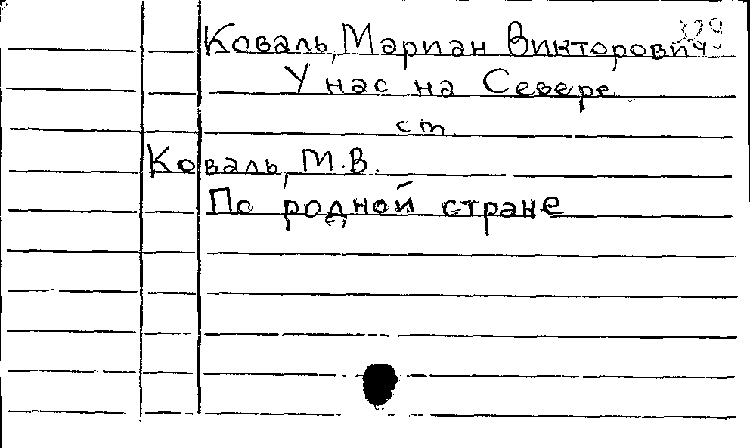 329
Коваль, Мариан Викторович.
У нас на Севере
ст.
Коваль, М.В.
По родной стране